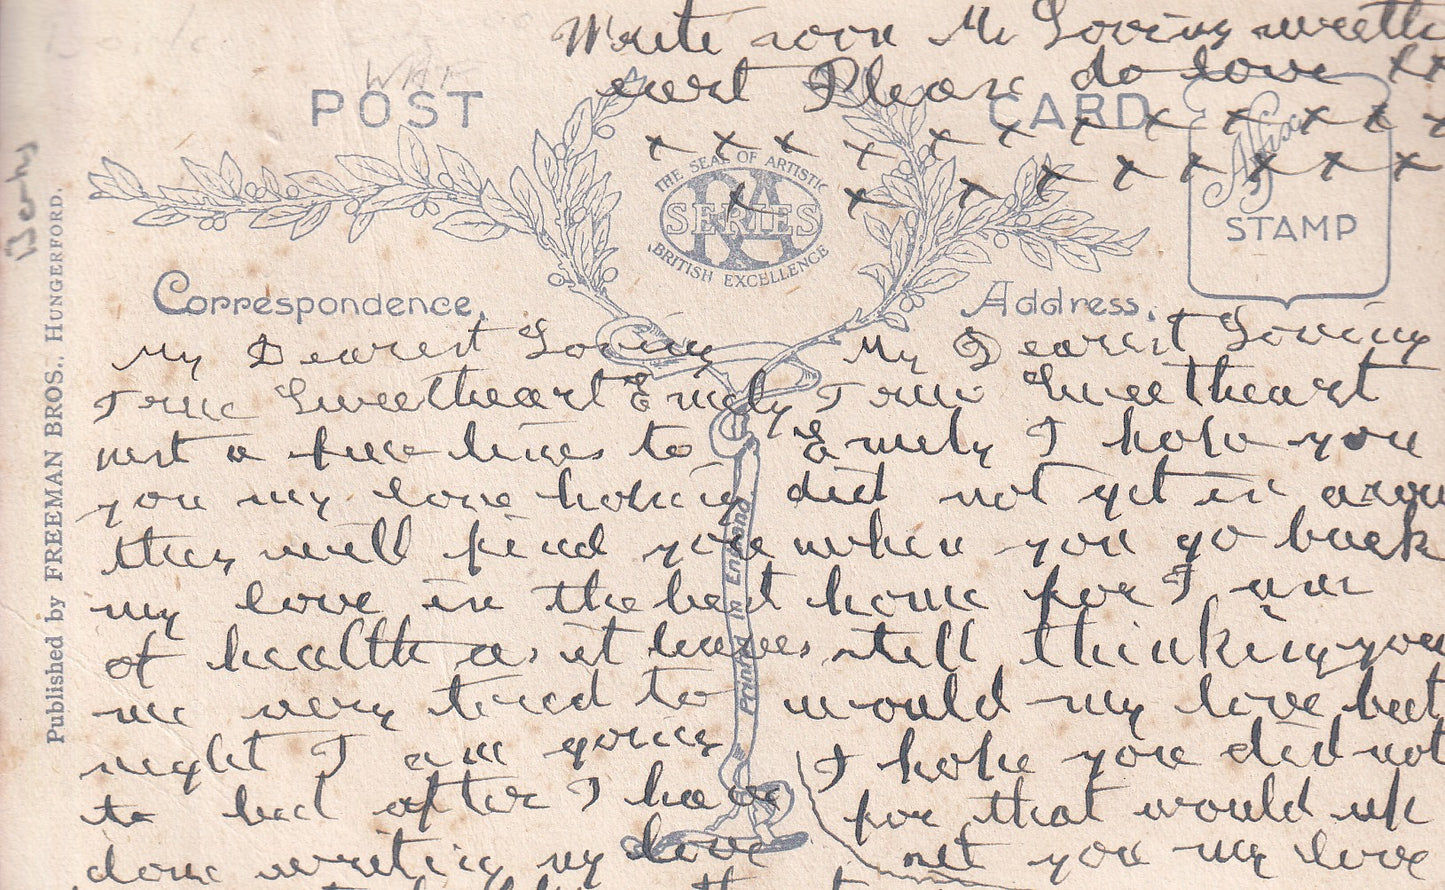 Write soon My Loving sweethe
eart Please do love xx
x x x x x x x x x x x x
x x x x x x x x x x
POST CARD
THE SEAL OF ARTISTIC
RA
SERIES
BRITISH EXCELLENCE
Affix
STAMP
Berks
Published by FREEMAN BROS., HUNGERFORD.
Correspondence.
My Dearest Loving
True Sweetheart Emely
just a few lines to
you my love hoping
they will find you
my love in the best
of health as it leaves
me very tired to
night I am going
to bed after I have
done writing my love
Printed in England
Address.
My Dearest Loving
True Sweetheart
Emely I hope you
did not get in a row
when you go back
home for I am
still thinking you
would my love but
I hope you did not
for that would up
set you my love